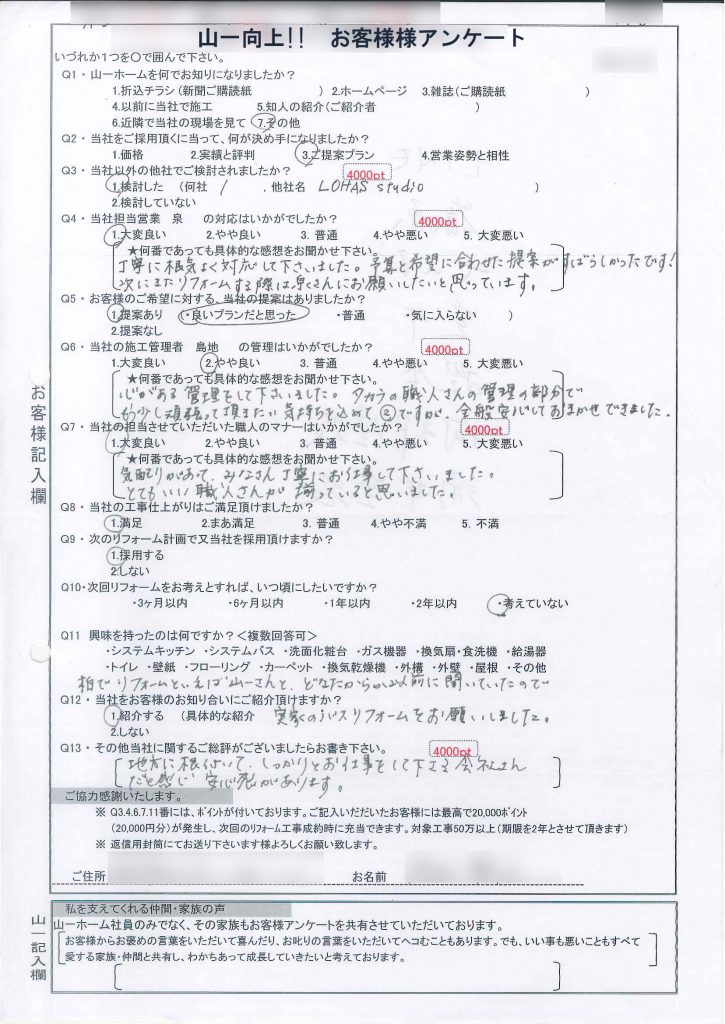 山一向上!!　お客様様アンケート
いづれか1つを〇で囲んで下さい。
Q1・山一ホームを何でお知りになりましたか？
1.折込チラシ(新聞ご購読紙　　　)　2.ホームページ　3.雑誌(ご購読紙　　　)
4.以前に当社で施工　5.知人の紹介(ご紹介者　　　)
6.近隣で当社の現場を見て　7.その他
Q2・当社をご採用頂くに当って、何が決め手になりましたか？
1.価格　2.実績と評判　3.ご提案プラン　4.営業姿勢と相性
Q3・当社以外の他社でご検討されましたか？　4000pt
1.検討した　(何社　1　、他社名　LOHAS studio　)
2.検討していない
Q4・当社担当営業　泉　の対応はいかがでしたか？　4000pt
1.大変良い　2.やや良い　3. 普通　4.やや悪い　5. 大変悪い
★何番であっても具体的な感想をお聞かせ下さい。
丁寧に根気よく対応して下さいました。予算と希望に合わせた提案がすばらしかったです!
次にまたリフォームする際は泉さんにお願いしたいと思っています。
Q5・お客様のご希望に対する、当社の提案はありましたか？
1.提案あり　(・良いプランだと思った　・普通　・気に入らない　)
2.提案なし
Q6・当社の施工管理者　島地　の管理はいかがでしたか？　4000pt
1.大変良い　2.やや良い　3. 普通　4.やや悪い　5. 大変悪い
★何番であっても具体的な感想をお聞かせ下さい。
心がある管理をして下さいました。タカラの職人さんの管理の部分で
もう少し頑張って頂きたい気持ちを込めて②ですが、全般安心しておまかせできました。
Q7・当社の担当させていただいた職人のマナーはいかがでしたか？　4000pt
1.大変良い　2.やや良い　3. 普通　4.やや悪い　5. 大変悪い
★何番であっても具体的な感想をお聞かせ下さい。
気配りがあって、みなさん丁寧にお仕事して下さいました。
とてもいい職人さんが揃っていると思いました。
Q8・当社の工事仕上がりはご満足頂けましたか？
1.満足　2.まあ満足　3. 普通　4.やや不満　5. 不満
Q9・次のリフォーム計画で又当社を採用頂けますか？
1.採用する
2.しない
Q10・次回リフォームをお考えとすれば、いつ頃にしたいですか？
・3ヶ月以内　・6ヶ月以内　・1年以内　・2年以内　・考えていない
Q11　興味を持ったのは何ですか？＜複数回答可＞
・システムキッチン　・システムバス　・洗面化粧台　・ガス機器　・換気扇・食洗機　・給湯器
・トイレ　・壁紙　・フローリング　・カーペット　・換気乾燥機　・外構　・外壁　・屋根　・その他
柏でリフォームといえば山一さんと、どなたからか以前に聞いていたので
Q12・当社をお客様のお知り合いにご紹介頂けますか？
1.紹介する　(具体的な紹介　実家のリフォームをお願いしました。
2.しない
Q13・その他当社に関するご総評がございましたらお書き下さい。　4000pt
地方に根付いて、しっかりとお仕事をして下さる会社さん
だと感じ安心感があります。
ご協力感謝いたします。
※ Q3.4.6.7.11番には、ポイントが付いております。ご記入いただいたお客様には最高で20,000ポイント
(20,000円分)が発生し、次回のリフォーム工事成約時に充当できます。対象工事50万以上(期限を2年とさせて頂きます)
※ 返信用封筒にてお送り下さいます様よろしくお願い致します。
ご住所　お名前
お客様記入欄
私を支えてくれる仲間・家族の声
山一ホーム社員のみでなく、その家族もお客様アンケートを共有させていただいております。
お客様からお褒めの言葉をいただいて喜んだり、お叱りの言葉をいただいてヘコむこともあります。でも、いい事も悪いこともすべて
愛する家族・仲間と共有し、わかちあって成長していきたいと考えております。
山一記入欄